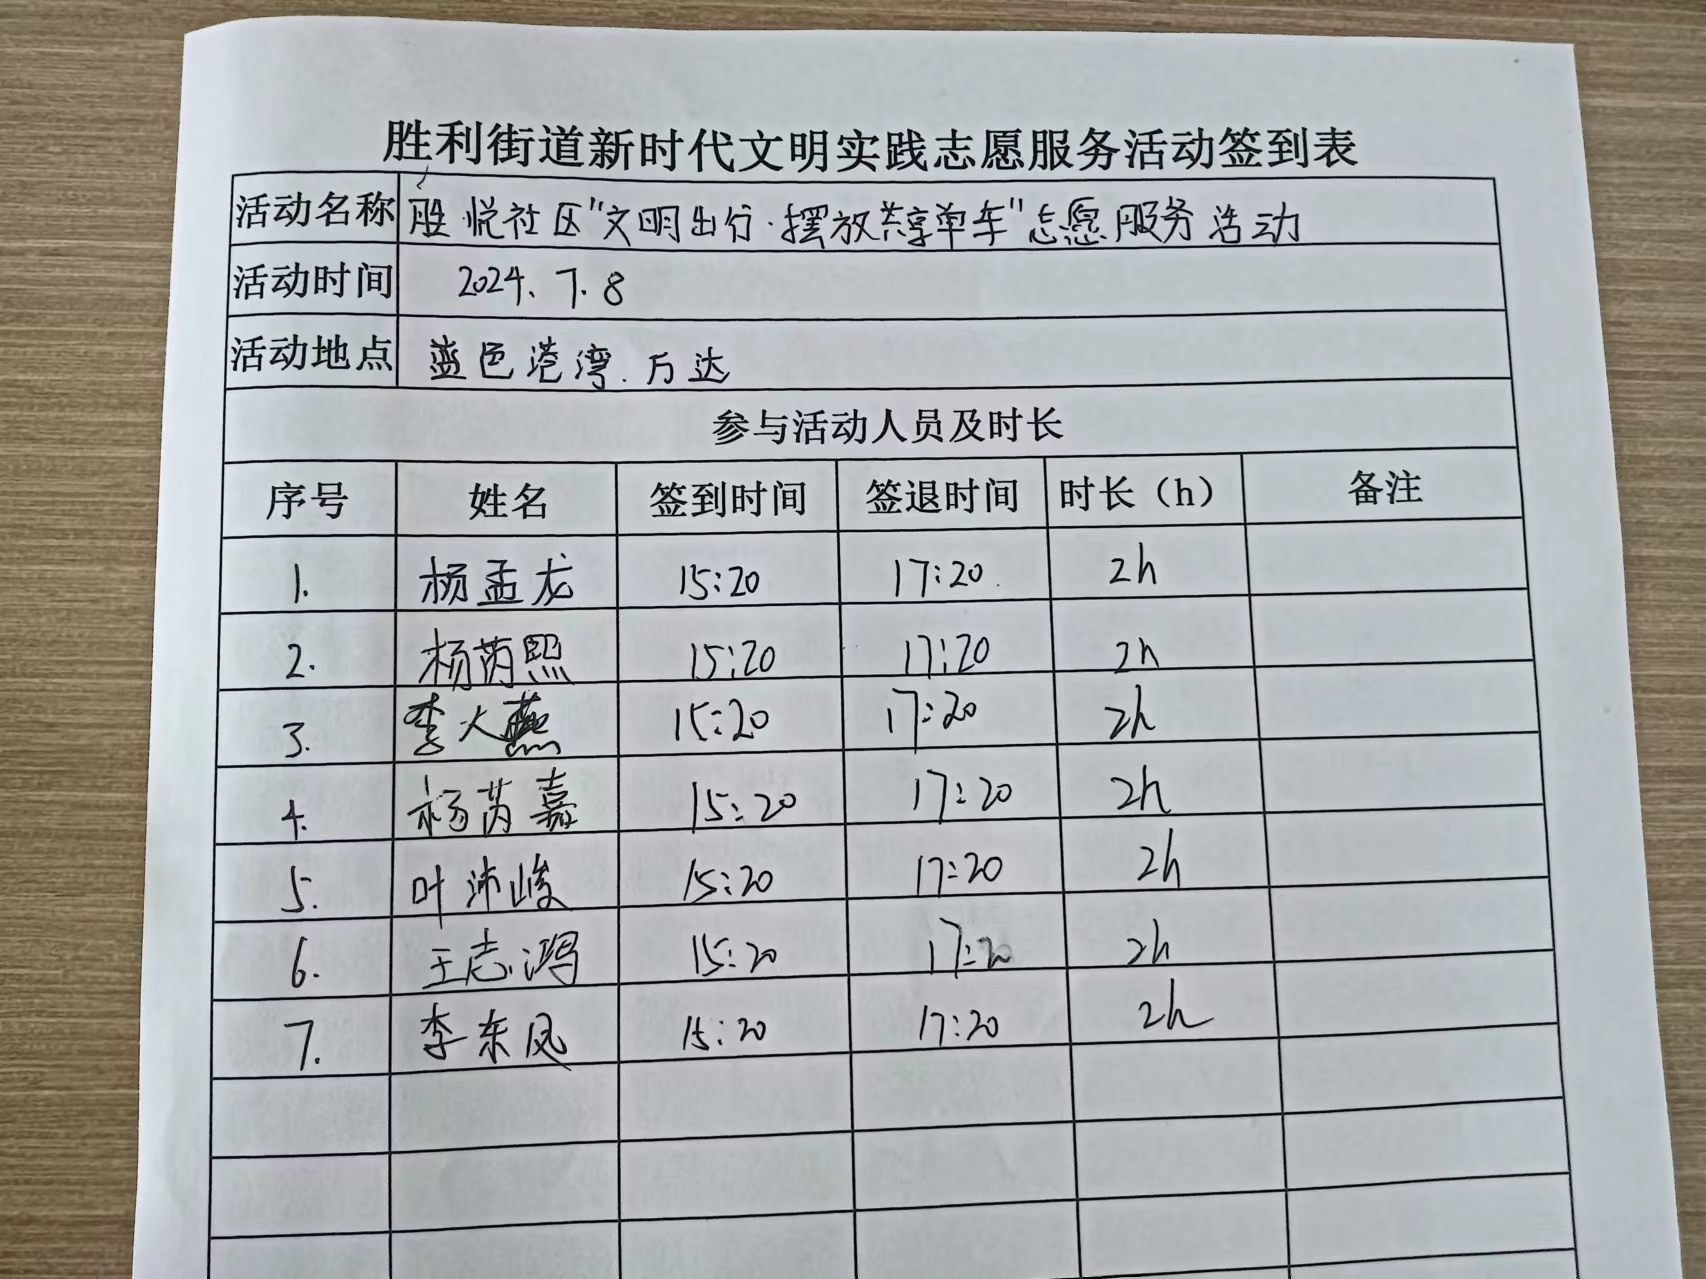 胜利街道新时代文明实践志愿服务活动签到表
活动名称 胜悦社区"文明出行·摆放共享单车"志愿服务活动
活动时间 2024.7.8
活动地点 蓝色港湾.万达
参与活动人员及时长
序号 姓名 签到时间 签退时间 时长（h） 备注
1. 杨孟龙 15:20 17:20 2h
2. 杨芮熙 15:20 17:20 2h
3. 李火燕 15:20 17:20 2h
4. 杨芮嘉 15:20 17:20 2h
5. 叶沛峻 15:20 17:20 2h
6. 王志鸿 15:20 17:20 2h
7. 李东凤 15:20 17:20 2h